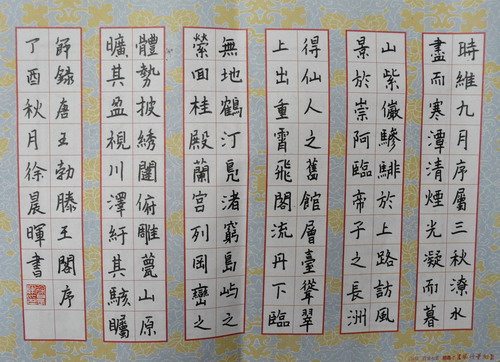 時維九月序屬三秋潦水
盡而寒潭清煙光凝而暮
山紫儼驂騑於上路訪風
景於崇阿臨帝子之長洲
得仙人之舊館層臺聳翠
上出重霄飛閣流丹下臨
無地鶴汀鳧渚窮島嶼之
縈回桂殿蘭宮列岡巒之
體勢披綉闥俯雕甍山原
曠其盈視川澤紆其駭矚
節錄唐王勃滕王閣序
丁酉秋月徐晨暉書